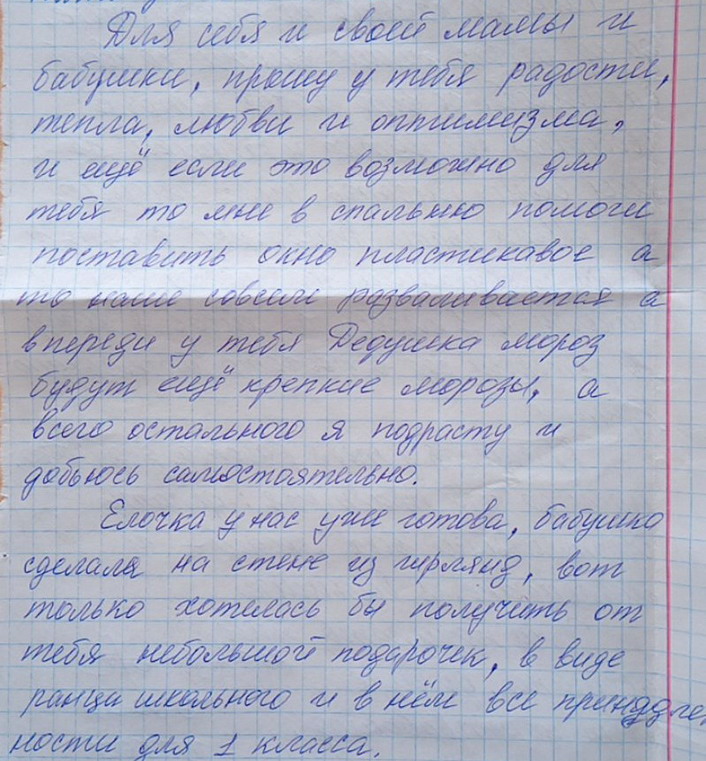 Для себя и своей мамы и
бабушки, прошу у тебя радости,
тепла, любви и оптимизма,
и ещё если это возможно для
тебя то мне в спальню помоги
поставить окно пластикавое а
то наше совсем разваливается а
впереди у тебя Дедушка мороз
будут ещё крепкие морозы, а
всего остального я подрасту и
добьюсь самостоятельно.
Елочка у нас уже готова, бабушка
сделала на стене из гирлянд, вот
только хотелась бы получить от
тебя небольшой подарочек, в виде
ранца школьного и в нём все принадле
ности для 1 класса.